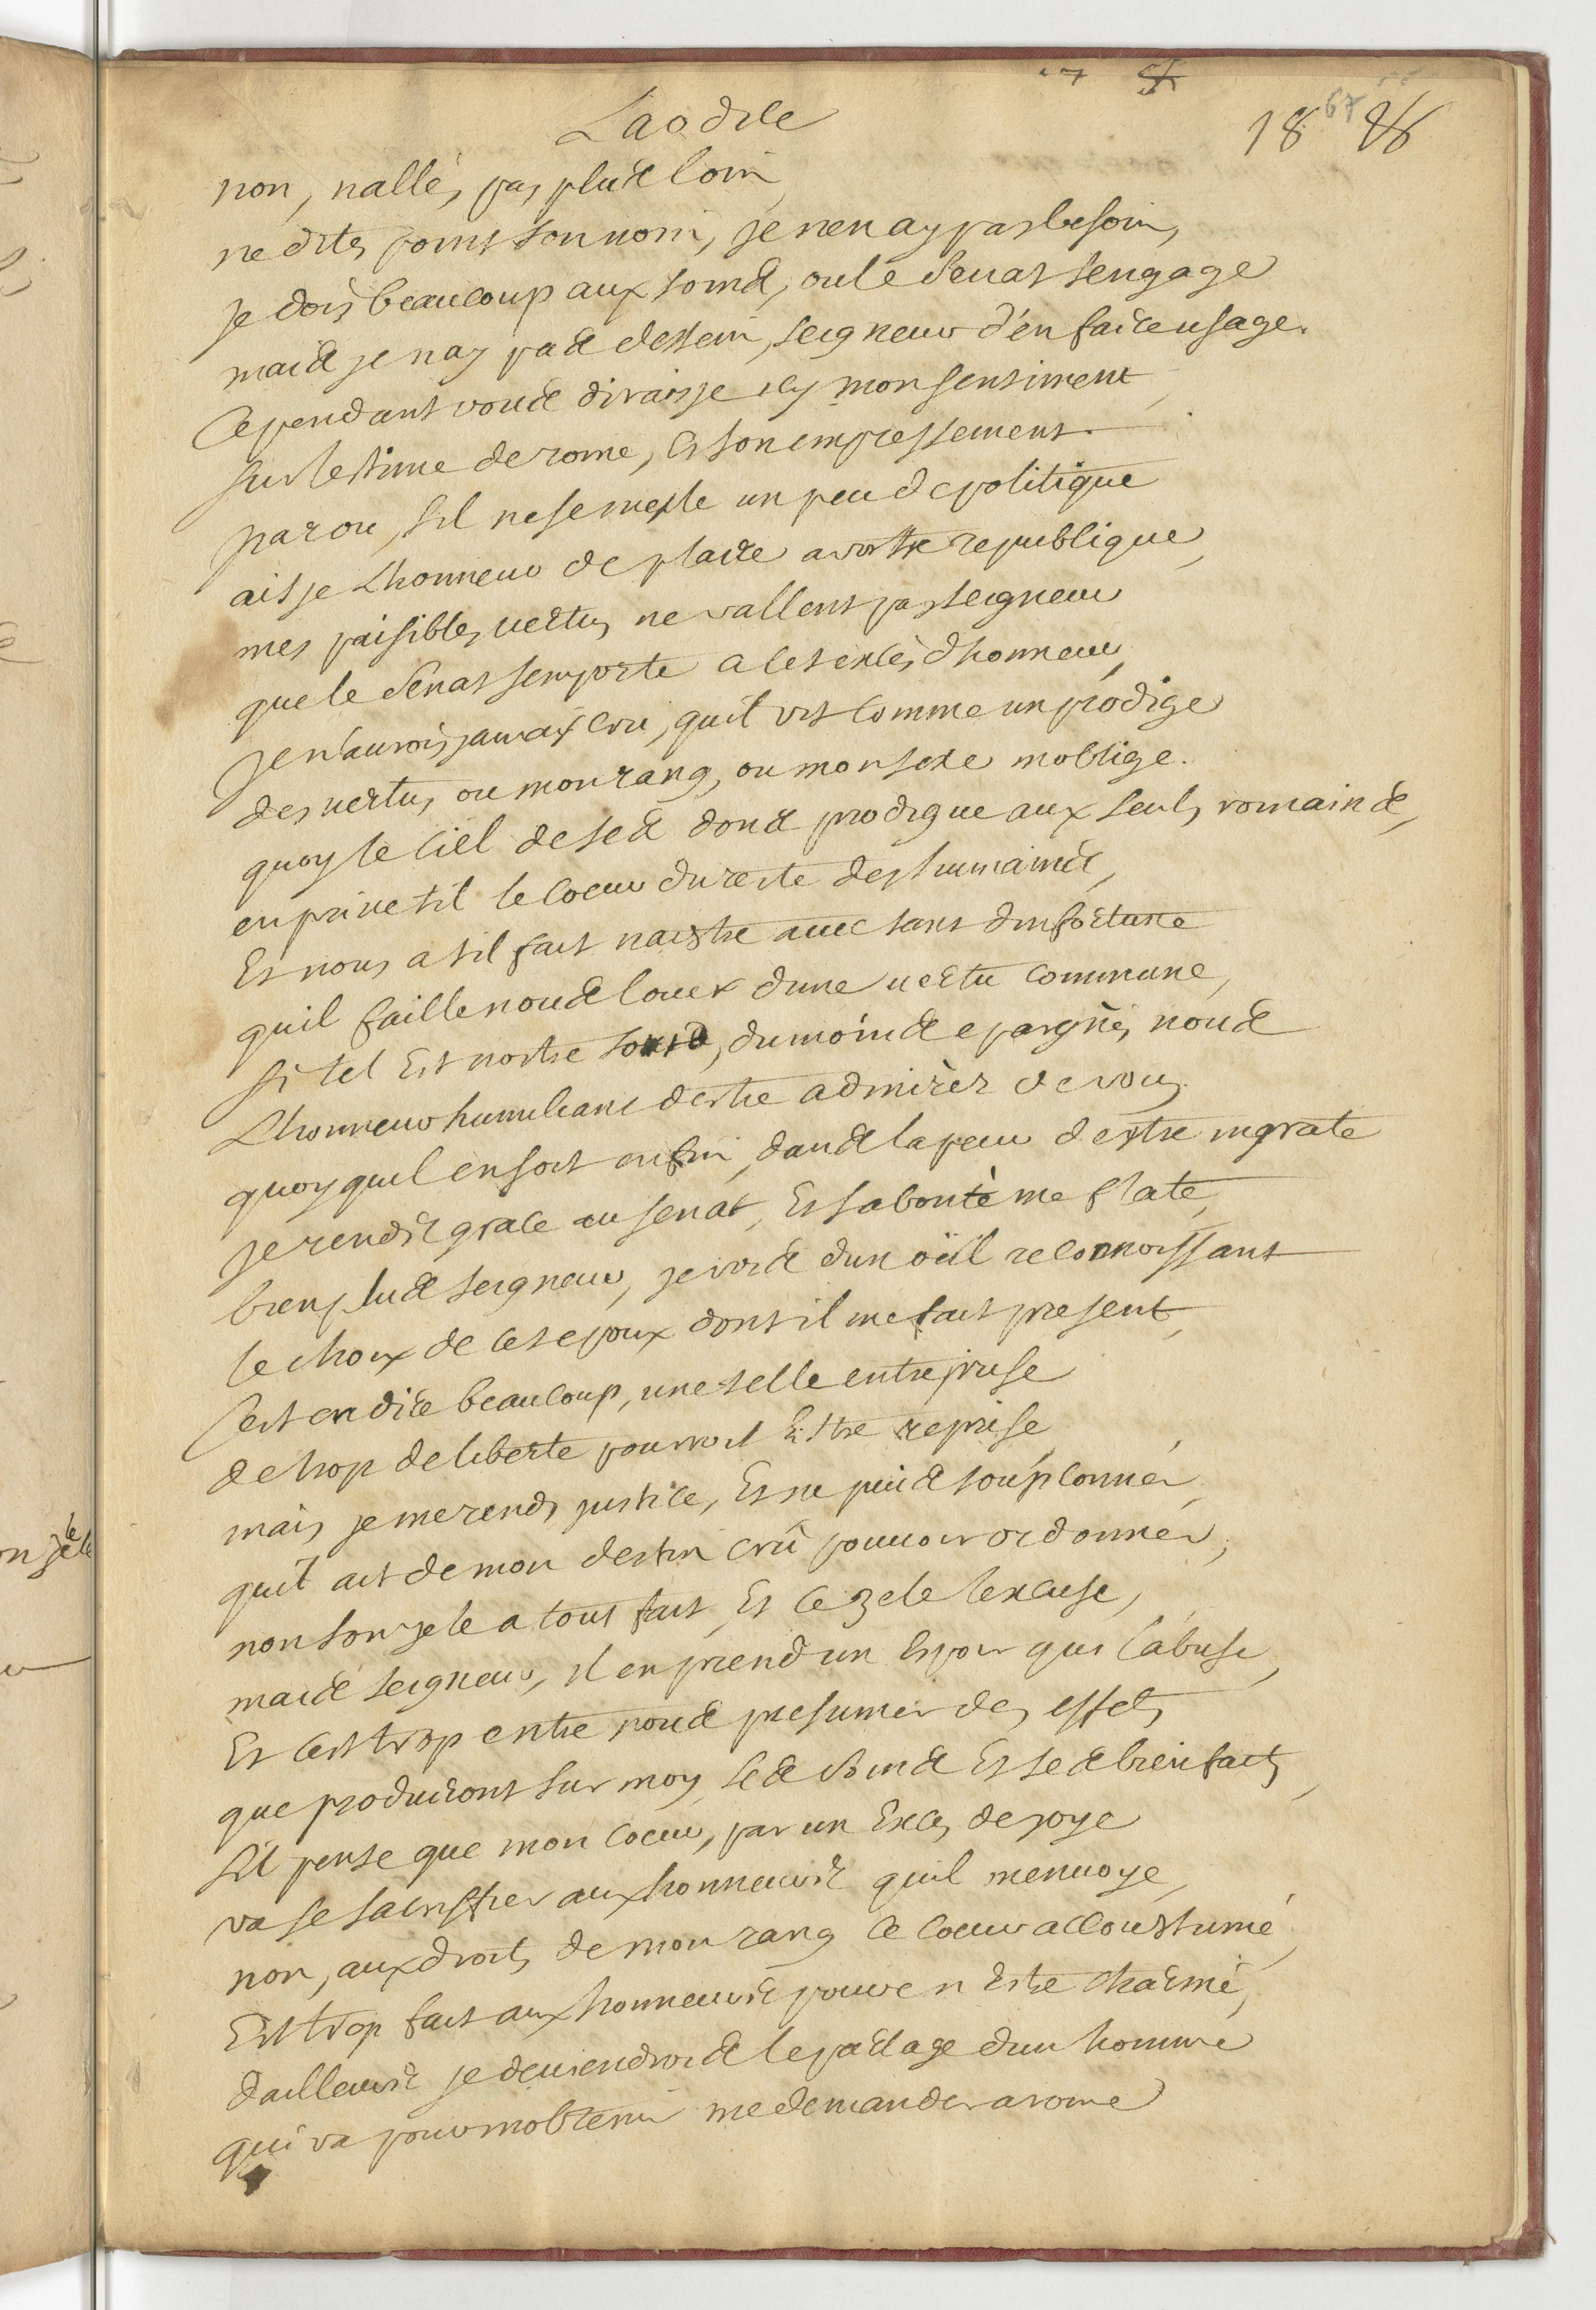 18 67
Laodice
non, nallés pas plus loin
ne dites point son nom, je nen ay pas besoin,
je dois beaucoup aux soins, ou le Senat sengage
mais je nay pas dessein, seigneur d'en faire usage.
Cependant vous dirais je icy mon sentiment,
sur lestime de rome, et son empressement.
par ou, sil ne se mesle un peu de politique
ait je Lhonneur de plaire a vostre republique,
mes paisibles vertus ne vallent pas seigneur
que le Senat semporte a cet exces dhonneur,
je n'aurois jamais cru, quil vit comme un prodige
des vertus ou mon rang, ou mon sexe moblige.
quoy le Ciel de ses dons prodigue aux seuls romains,
en prive til le Coeur du reste des humains,
Et nous a til fait naistre avec tant dinfortune
quil faille nous louer dune vertu commune,
si tel Est nostre sort, du moins epargnés nous
Lhonneur humiliant destre admirer de vous.
quoy quil en soit enfin, dans la peur d'estre ingrate
je rends grace au senat, Et sa bonté me flate,
bien plus seigneur, je vois dun oëil reconnoissant
le choix de cet epoux dont il me fait present,
Cest en dire beaucoup, une telle entreprise
de trop de liberte pourroit Estre reprise,
mais je me rends justice, Et ne puis soupçonner,
quil ait de mon destin crû pouvoir ordonner,
non son zele a tout fait, Et ce zele lexcuse,
mais seigneur, il en prend un Espoir qui labuse,
Et cest trop entre nous presumer des effets
que produiront sur moy, ses soins Et ses bienfaits,
Sil pense que mon Coeur, par un Exces de joye
va se sacrifier aux honneurs quil menvoye,
non, aux droits de mon rang ce Coeur accoustumé,
Est trop fait aux honneurs pour en Estre charmé,
dailleurs je deviendrois le partage dun homme
qui va pour mobtenir me demander a rome